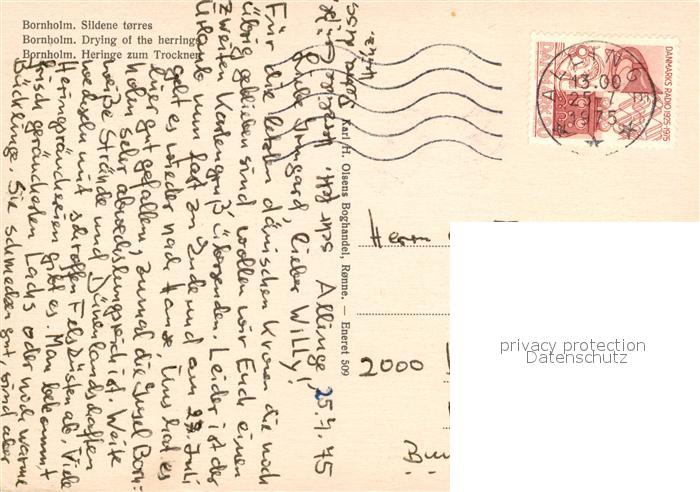 Bornholm. Sildene tørres
Bornholm. Drying of the herrings
Bornholm. Heringe zum Trocknen
Karl H. Olsens Boghandel, Rønne. — Eneret 509
DANMARKS RADIO 1925-1975
13.00
1975
Allinge, 25.7.75
Liebe Irmgard, lieber Willy!
Für die letzten dänischen Kronen die noch
übrig geblieben sind wollen wir Euch einen
zweiten Kartengruß übersenden. Leider ist der
Urlaub nun fast zu Ende und am 27. Juli
geht es wieder nach Hause. Uns hat es
hier gut gefallen, zumal die Insel Born-
holm sehr abwechslungsreich ist. Weite
weiße Strände und Dünenlandschaften
wechseln mit schroffen Felsküsten ab. Viele
Heringsräuchereien gibt es. Man bekommt
frisch geräucherten Lachs oder noch warme
Bücklinge. Sie schmecken gut, sind aber
sehr fett. Herzliche Grüße
Herrn
2000
privacy protection
Datenschutz